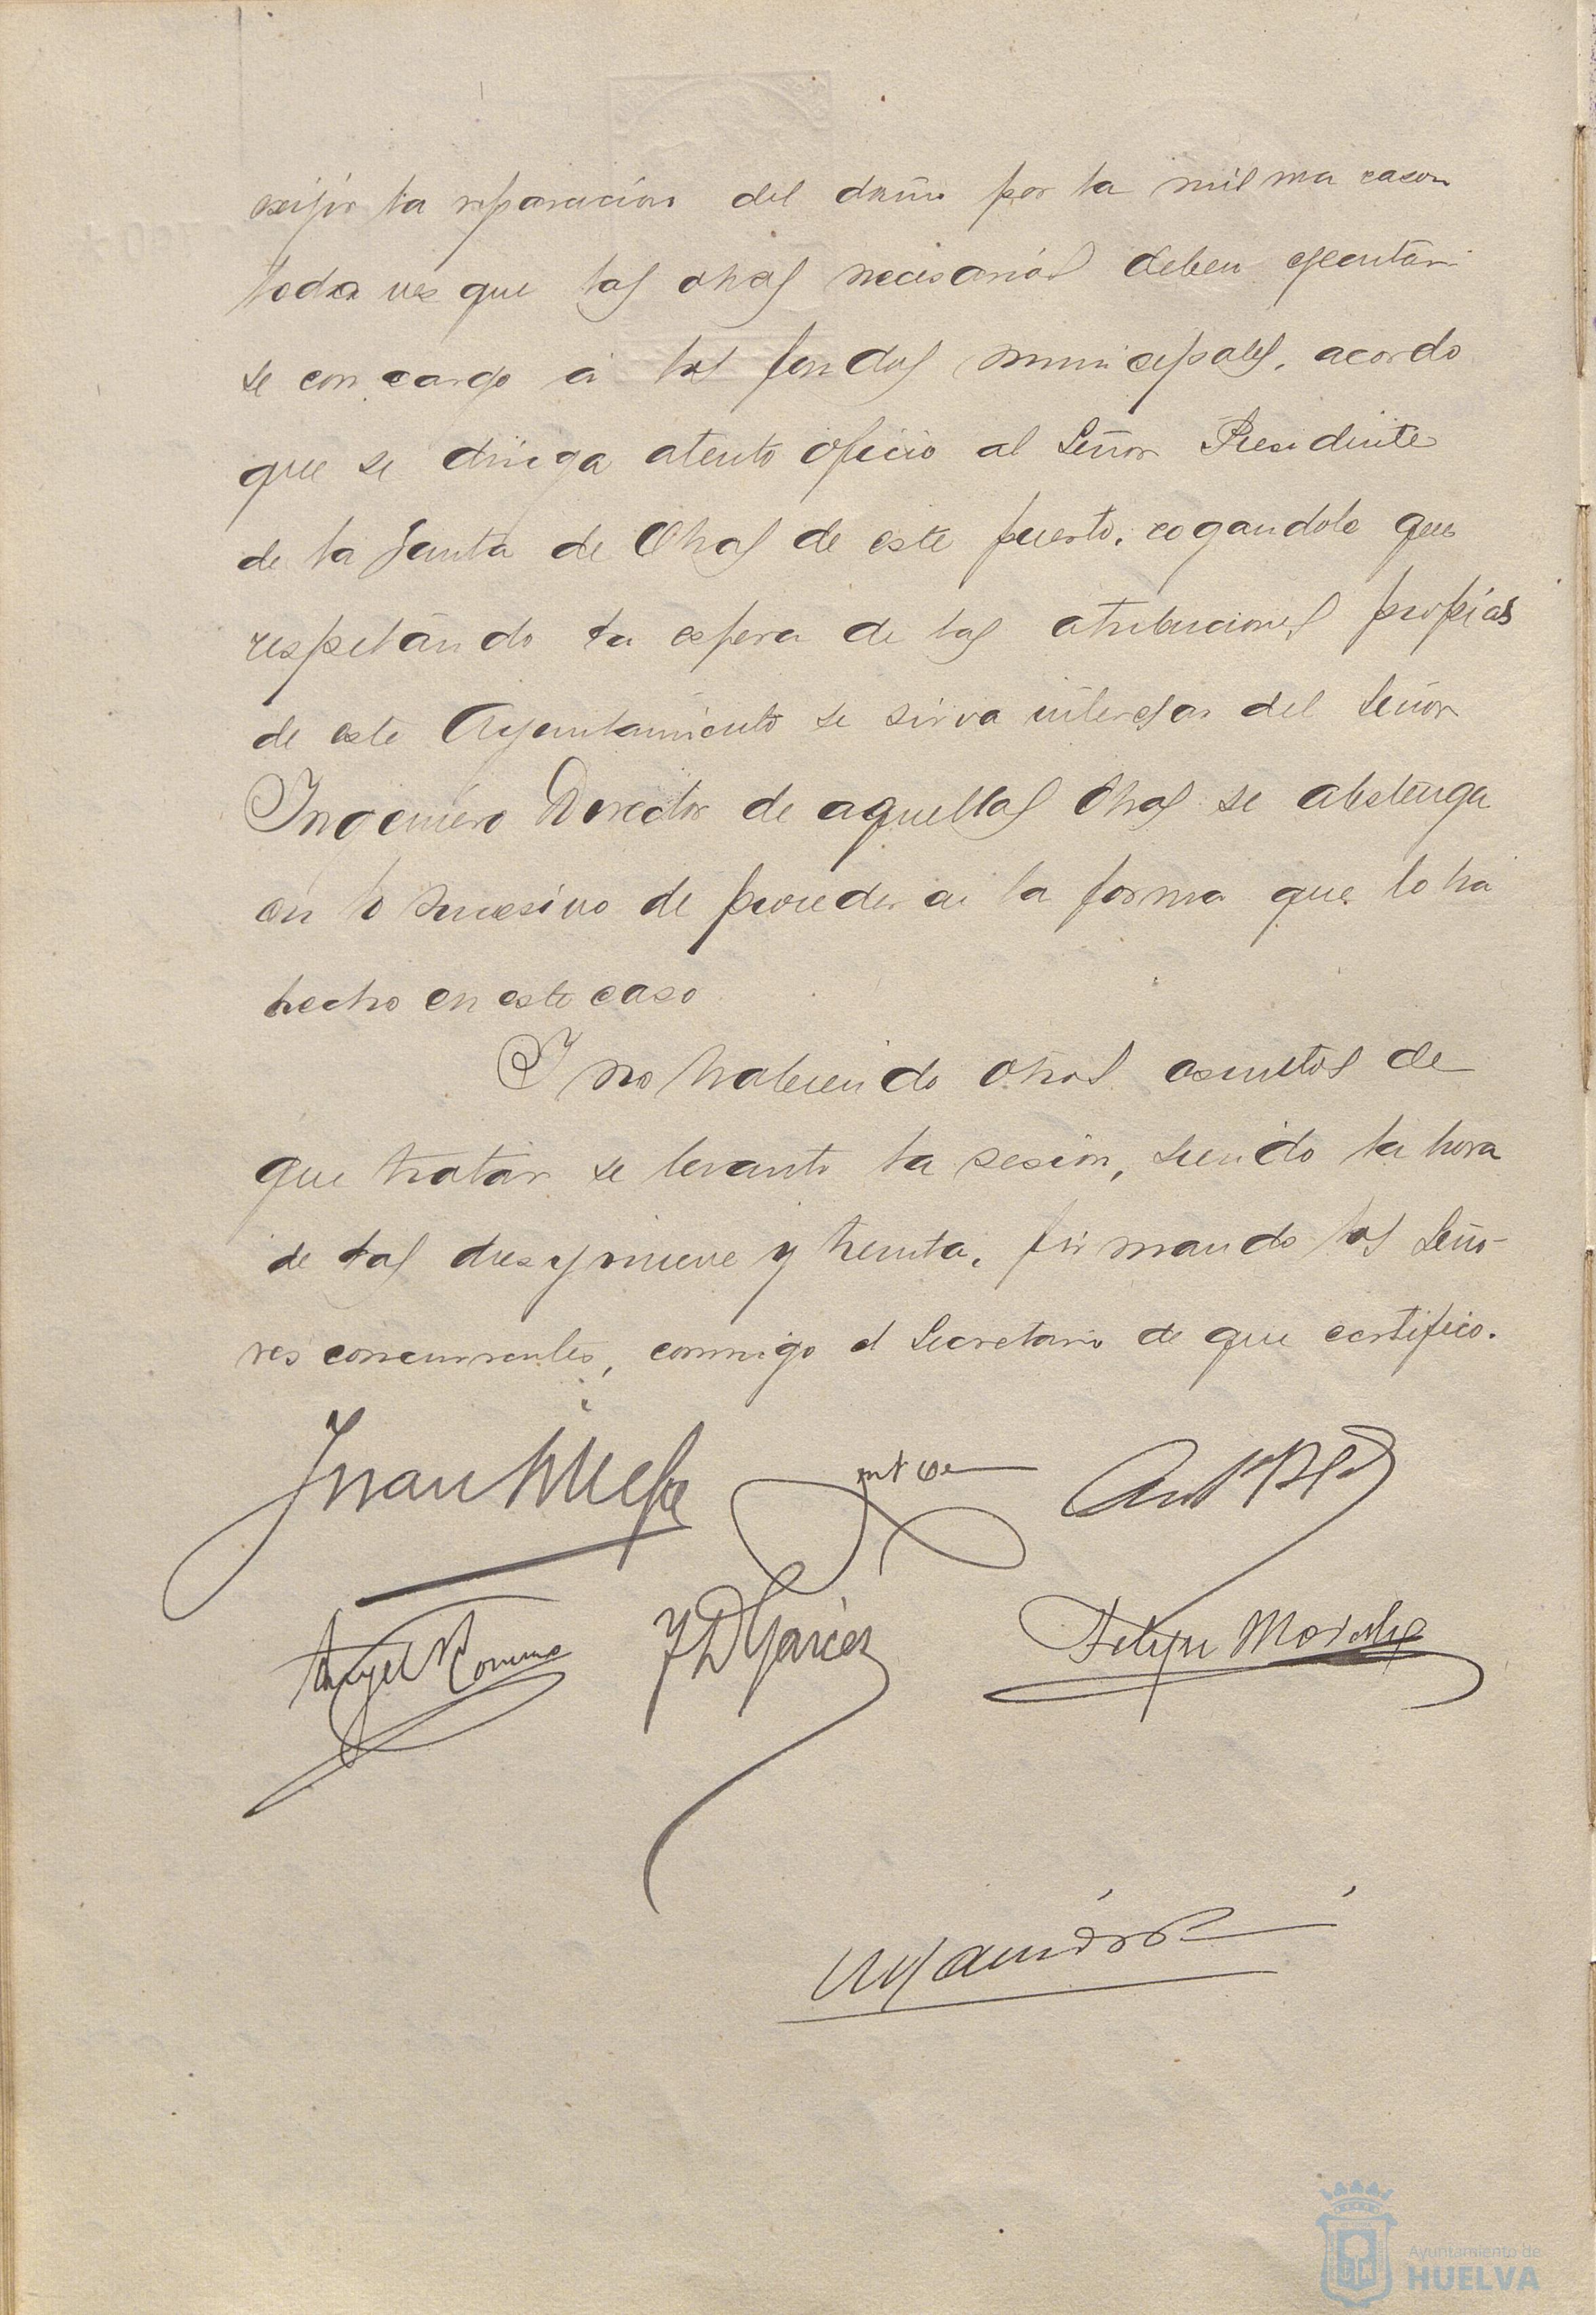 exijir la reparacion del daño por la misma razon
toda vez que las obras necesarias deben ejecutar
se con cargo á los fondos municipales, acordo
que se dirija atento oficio al Señor Presidente
de la Junta de Obras de este puerto, rogandole que
respetando la esfera de las atribuciones propias
de este Ayuntamiento se sirva interesar del Señor
Ingeniero Director de aquellas Obras se abstenga
en lo sucesivo de proceder en la forma que lo ha
hecho en este caso
Y no habiendo otros asuntos de
que tratar se levantó la sesión, siendo la hora
de las diez y nueve y treinta, firmando los Seño-
res concurrentes, conmigo el Secretario de que certifico.
Juan
Angel
J D Garcés
Felipe Morales
Ayuntamiento de
HUELVA